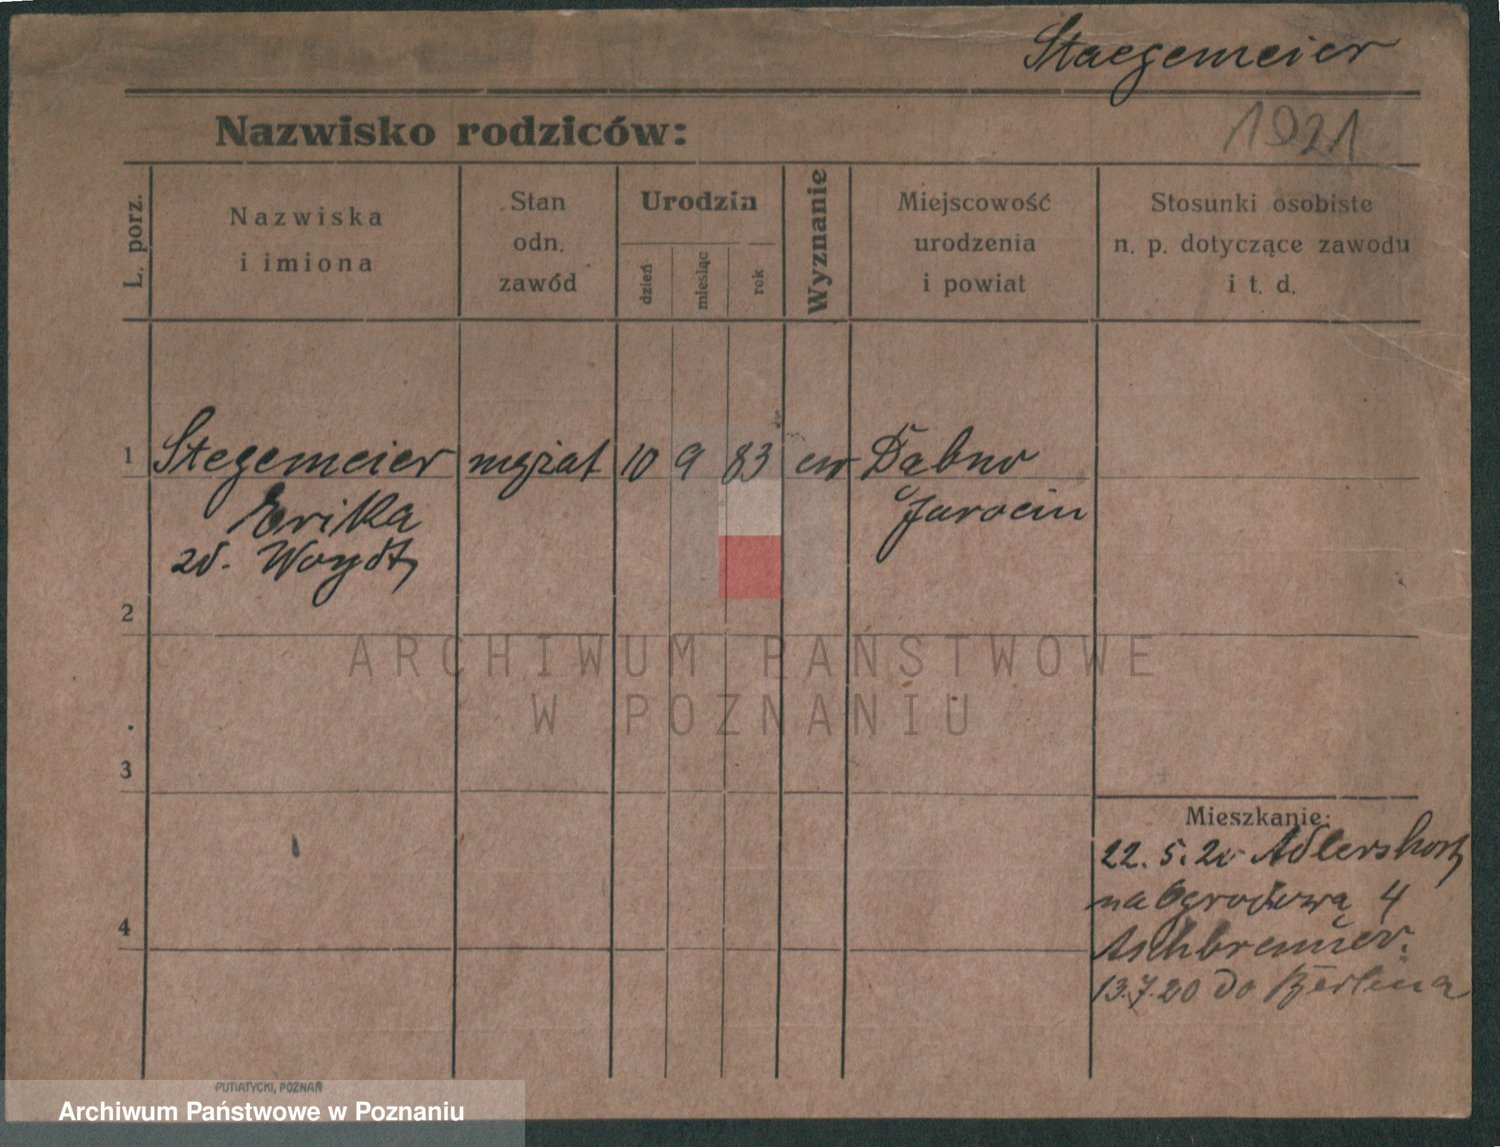 Staegemeier
Nazwisko rodziców:
1921
L. porz.
Nazwiska
i imiona
Stan
odn.
zawód
Urodzin
dzień
miesiąc
rok
Wyznanie
Miejscowość
urodzenia
i powiat
Stosunki osobiste
n. p. dotyczące zawodu
i t. d.
1 Stegemeier mężat 10 9 83 ew Dąbno
Erika Jarocin
zd. Woydt
2
ARCHIWUM PAŃSTWOWE
W POZNANIU
3
Mieszkanie:
22. 5. 20 Adlershorst
na Ogrodową 4
4
Aschbrenner.
13.7.20 do Berlina
PUTIATYCKI, POZNAŃ
Archiwum Państwowe w Poznaniu